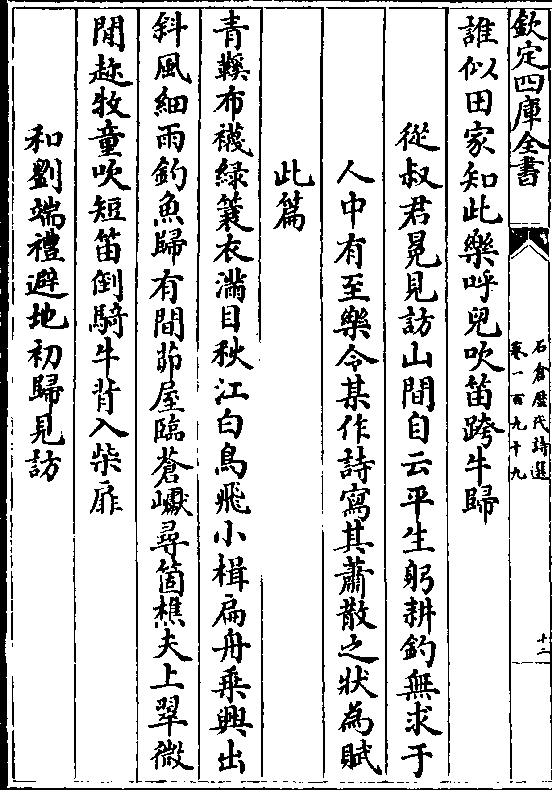 欽定四庫全書
石倉歷代詩選
卷一百九十九
十二
誰似田家知此樂呼兒吹笛跨牛歸
從叔君晃見訪山間自云平生躬耕釣無求于
人中有至樂令某作詩寫其蕭散之狀為賦
此篇
青鞵布襪緑蓑衣滿目秋江白鳥飛小楫扁舟乗興出
斜風細雨釣魚歸有間茆屋臨蒼巘尋箇樵夫上翠微
閒趂牧童吹短笛倒騎牛背入柴扉
和劉端禮避地初歸見訪